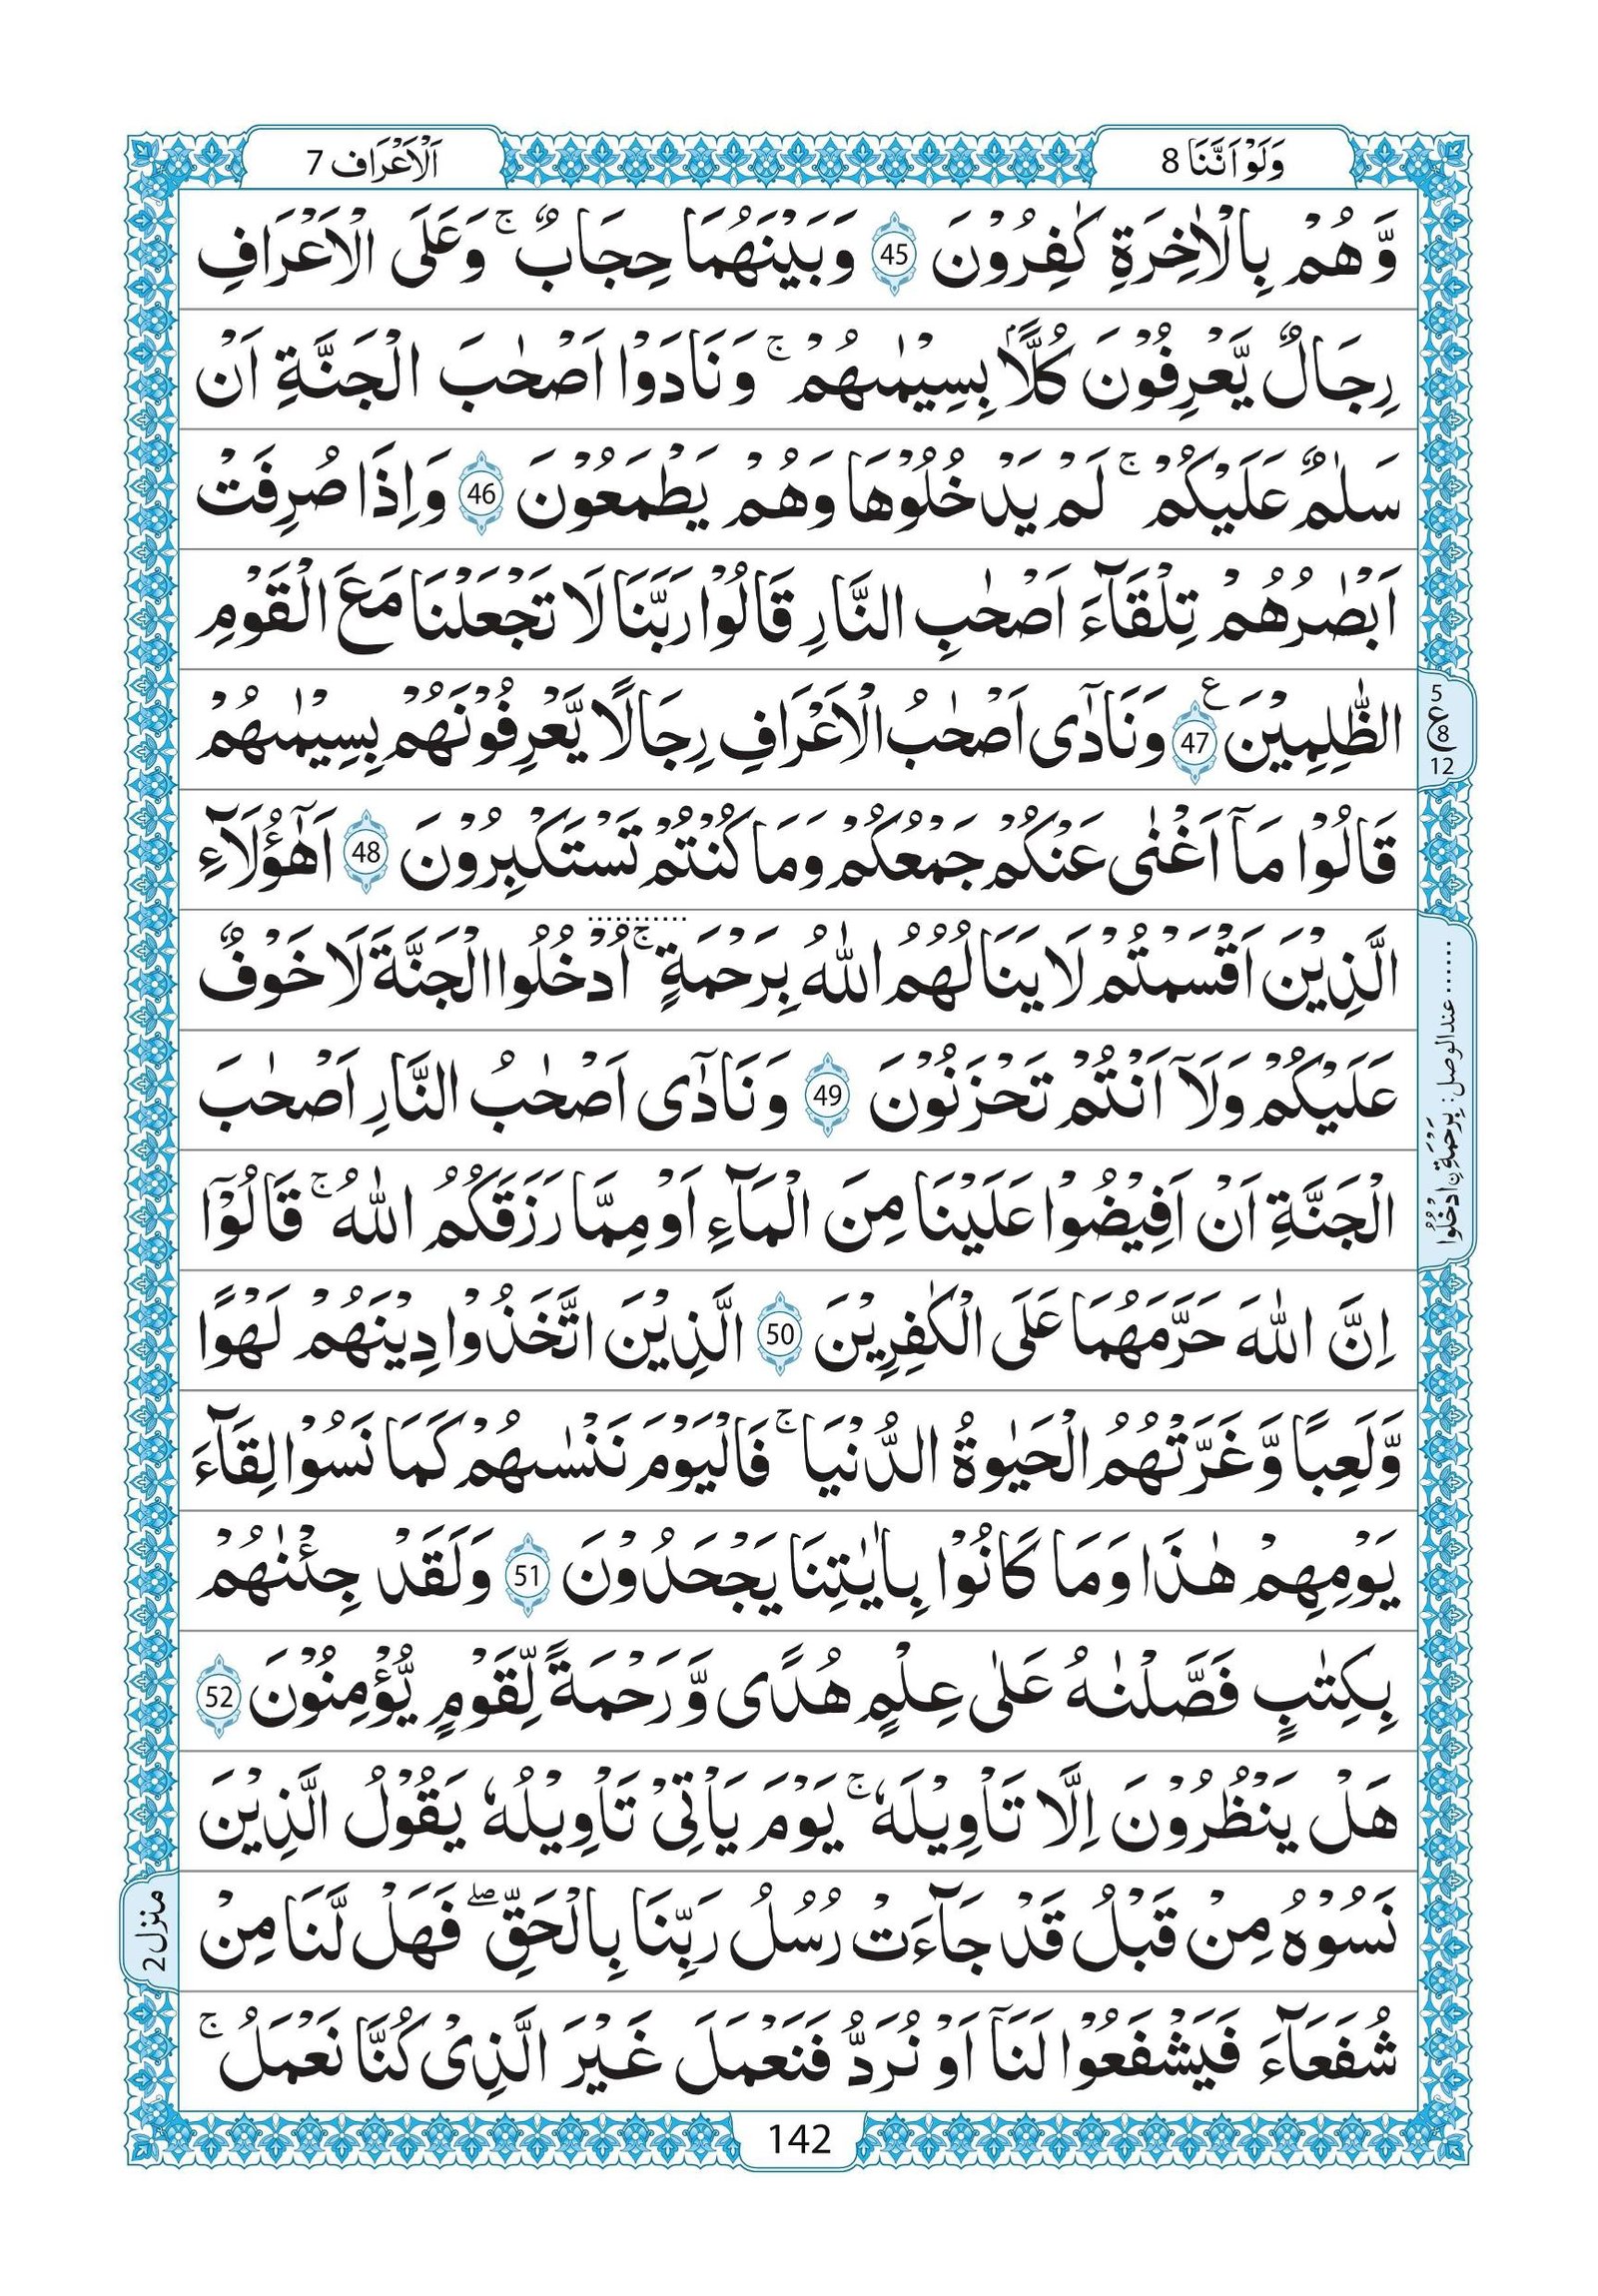 وَلَوْ اَنَّنَا 8
اَلْاَعْرَاف 7
وَّهُمْ بِالْاٰخِرَةِ كٰفِرُوْنَ 45 وَبَيْنَهُمَا حِجَابٌ ۚ وَعَلَى الْاَعْرَافِ
رِجَالٌ يَّعْرِفُوْنَ كُلًّاۢ بِسِيْمٰىهُمْ ۚ وَنَادَوْا اَصْحٰبَ الْجَنَّةِ اَنْ
سَلٰمٌ عَلَيْكُمْ ۚ لَمْ يَدْخُلُوْهَا وَهُمْ يَطْمَعُوْنَ 46 وَاِذَا صُرِفَتْ
اَبْصٰرُهُمْ تِلْقَآءَ اَصْحٰبِ النَّارِ قَالُوْا رَبَّنَا لَا تَجْعَلْنَا مَعَ الْقَوْمِ
الظّٰلِمِيْنَ ع 47 وَنَادٰٓى اَصْحٰبُ الْاَعْرَافِ رِجَالًا يَّعْرِفُوْنَهُمْ بِسِيْمٰىهُمْ
5
ع 8
12
قَالُوْا مَآ اَغْنٰى عَنْكُمْ جَمْعُكُمْ وَمَا كُنْتُمْ تَسْتَكْبِرُوْنَ 48 اَهٰٓؤُلَآءِ
الَّذِيْنَ اَقْسَمْتُمْ لَا يَنَالُهُمُ اللّٰهُ بِرَحْمَةٍ ۚ اُدْخُلُوا الْجَنَّةَ لَا خَوْفٌ
عَلَيْكُمْ وَلَآ اَنْتُمْ تَحْزَنُوْنَ 49 وَنَادٰٓى اَصْحٰبُ النَّارِ اَصْحٰبَ
...... عندالوصل: بِرَحْمَةِنِ ادْخُلُوْا
الْجَنَّةِ اَنْ اَفِيْضُوْا عَلَيْنَا مِنَ الْمَآءِ اَوْ مِمَّا رَزَقَكُمُ اللّٰهُ ۚ قَالُوْٓا
اِنَّ اللّٰهَ حَرَّمَهُمَا عَلَى الْكٰفِرِيْنَ 50 الَّذِيْنَ اتَّخَذُوْا دِيْنَهُمْ لَهْوًا
وَّلَعِبًا وَّغَرَّتْهُمُ الْحَيٰوةُ الدُّنْيَا ۚ فَالْيَوْمَ نَنْسٰىهُمْ كَمَا نَسُوْا لِقَآءَ
يَوْمِهِمْ هٰذَا وَمَا كَانُوْا بِاٰيٰتِنَا يَجْحَدُوْنَ 51 وَلَقَدْ جِئْنٰهُمْ
بِكِتٰبٍ فَصَّلْنٰهُ عَلٰى عِلْمٍ هُدًى وَّرَحْمَةً لِّقَوْمٍ يُّؤْمِنُوْنَ 52
هَلْ يَنْظُرُوْنَ اِلَّا تَاْوِيْلَهٗ ۚ يَوْمَ يَاْتِيْ تَاْوِيْلُهٗ يَقُوْلُ الَّذِيْنَ
نَسُوْهُ مِنْ قَبْلُ قَدْ جَآءَتْ رُسُلُ رَبِّنَا بِالْحَقِّ ۖ فَهَلْ لَّنَا مِنْ
منزل 2
شُفَعَآءَ فَيَشْفَعُوْا لَنَآ اَوْ نُرَدُّ فَنَعْمَلَ غَيْرَ الَّذِيْ كُنَّا نَعْمَلُ ۚ
142